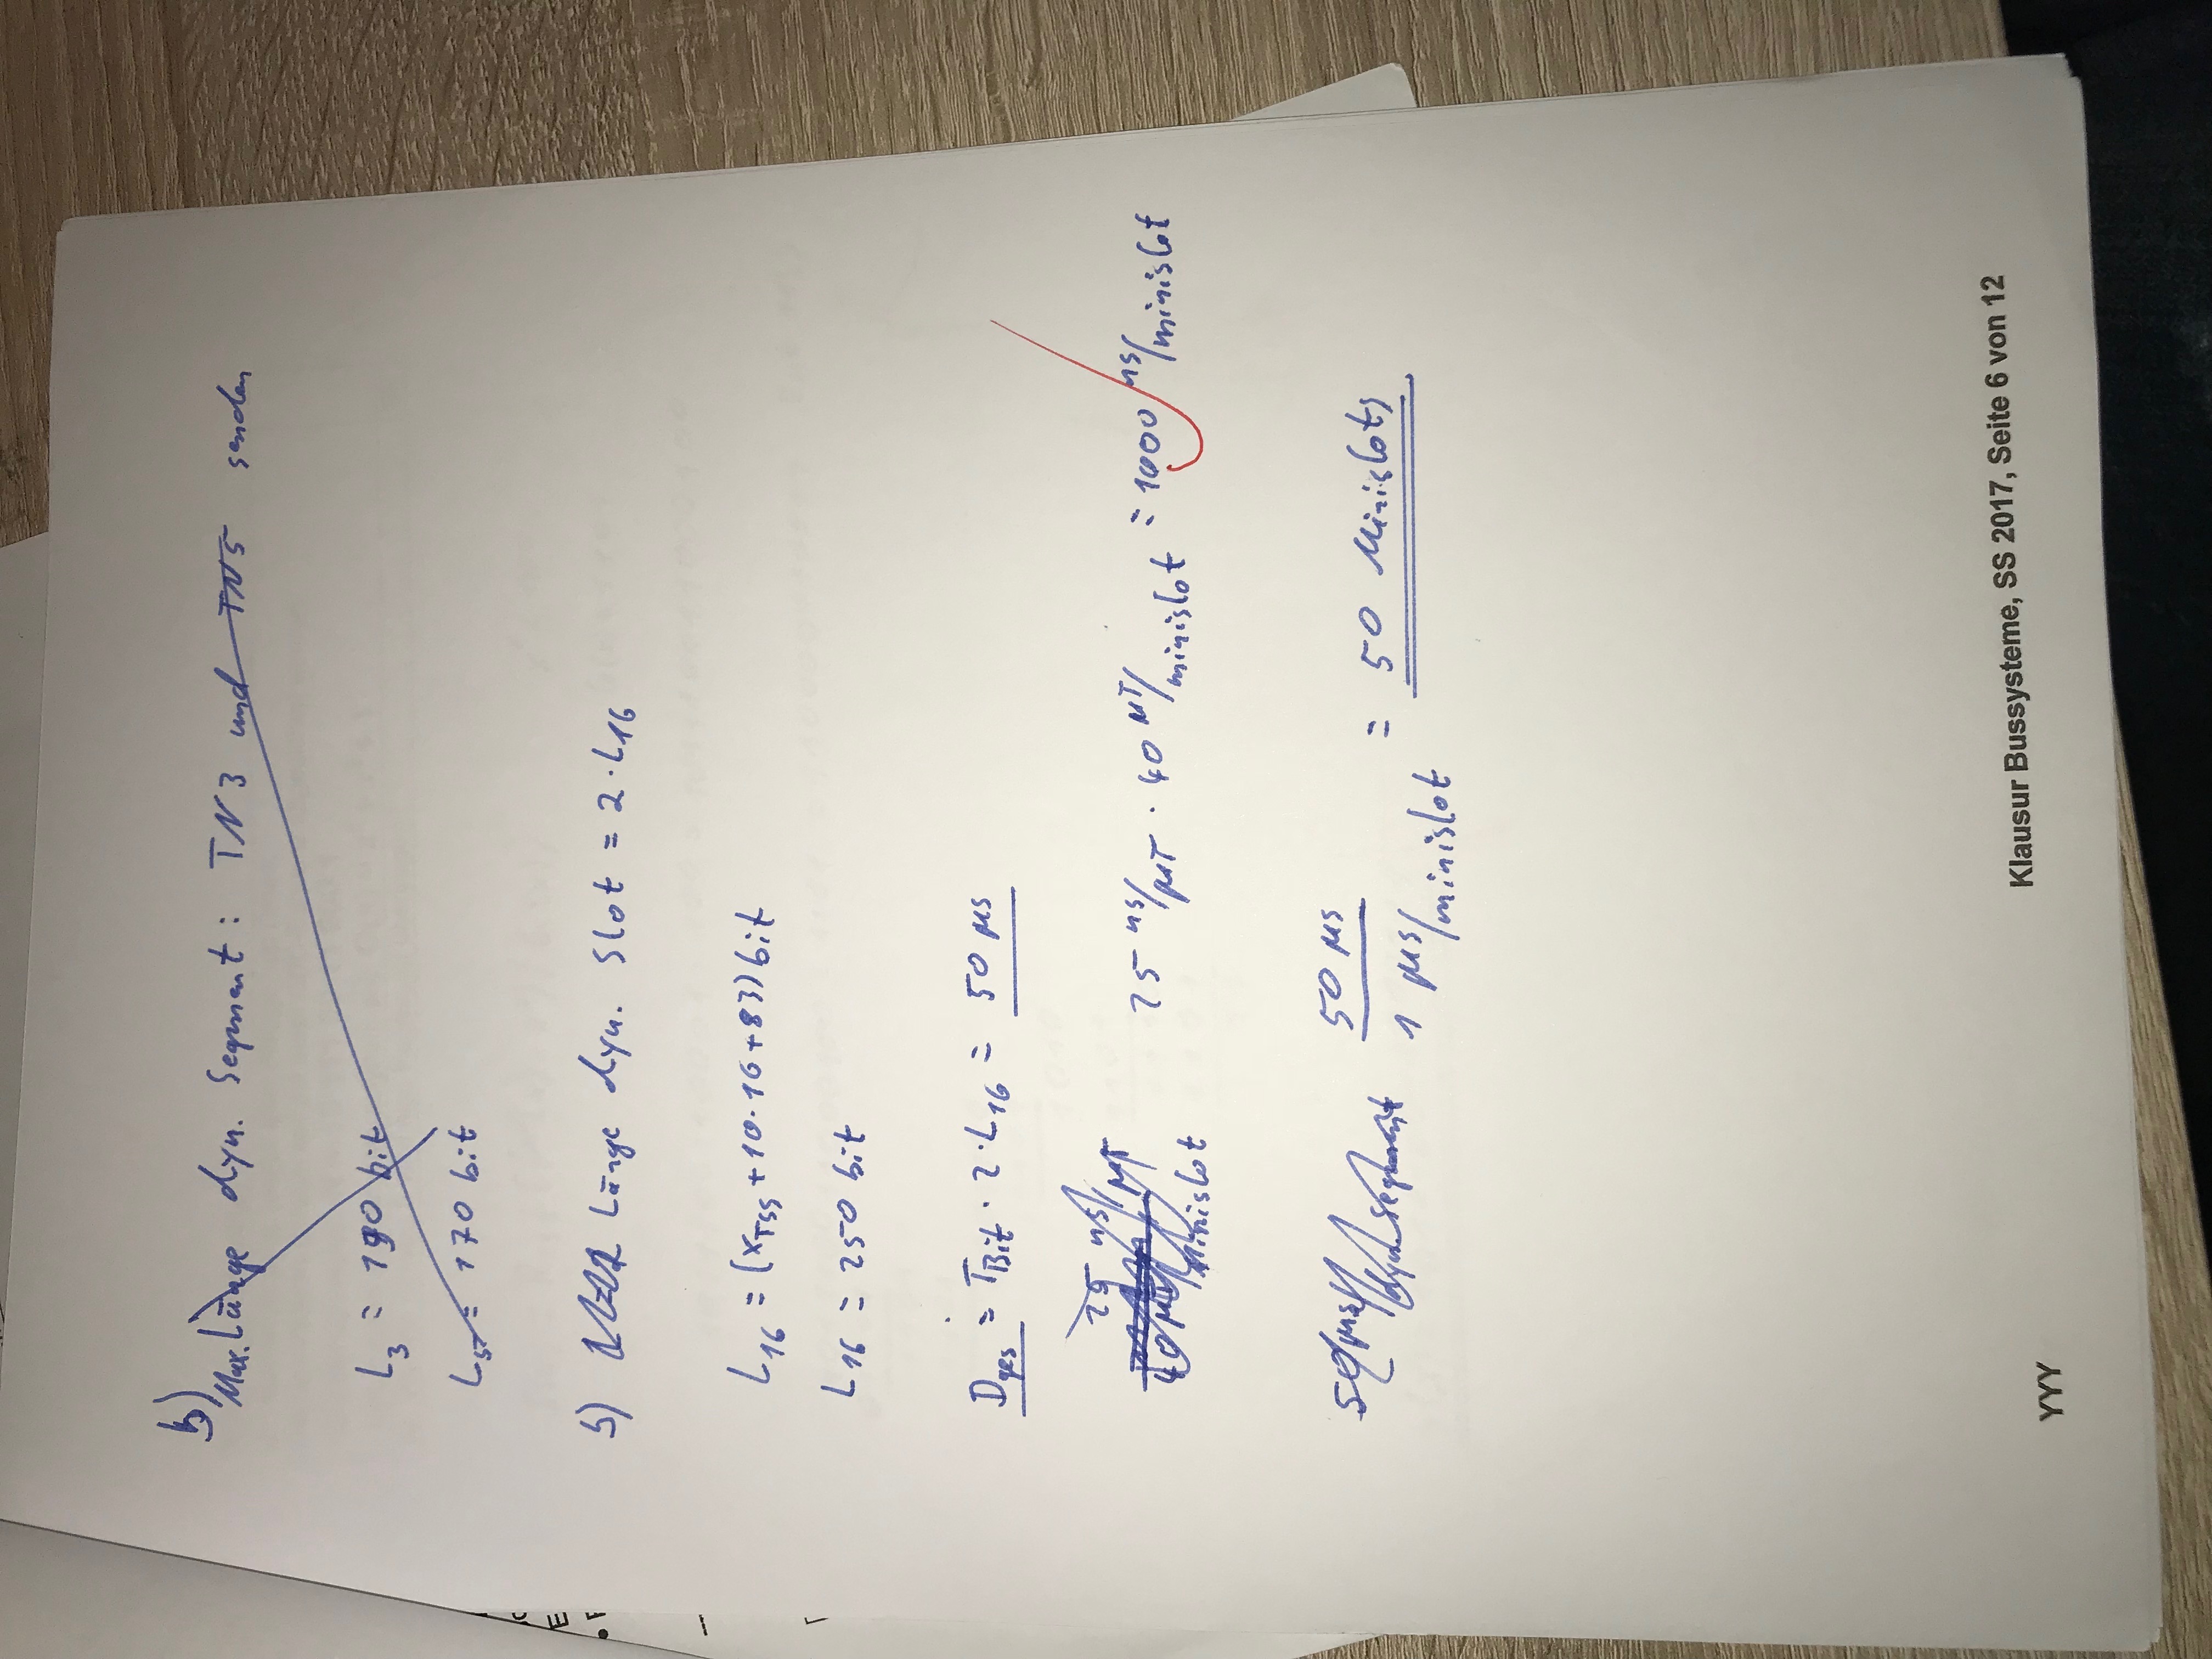 b)
Max. Länge dyn. Segment: TN3 und TN5 senden
L3 = 190 bit
L5 = 170 bit
b) Länge dyn. Slot = 2·L16
L16 = (xTSS + 10·16 + 83) bit
L16 = 250 bit
Dges = TBit · 2·L16 = 50 µs
25 ns/µT
40 µT/Minislot
25 ns/µT · 40 µT/minislot = 1000 ns/minislot
50 µs/dyn. Segment
50 µs
1 µs/minislot
= 50 Minislots
Klausur Bussysteme, SS 2017, Seite 6 von 12
YYY